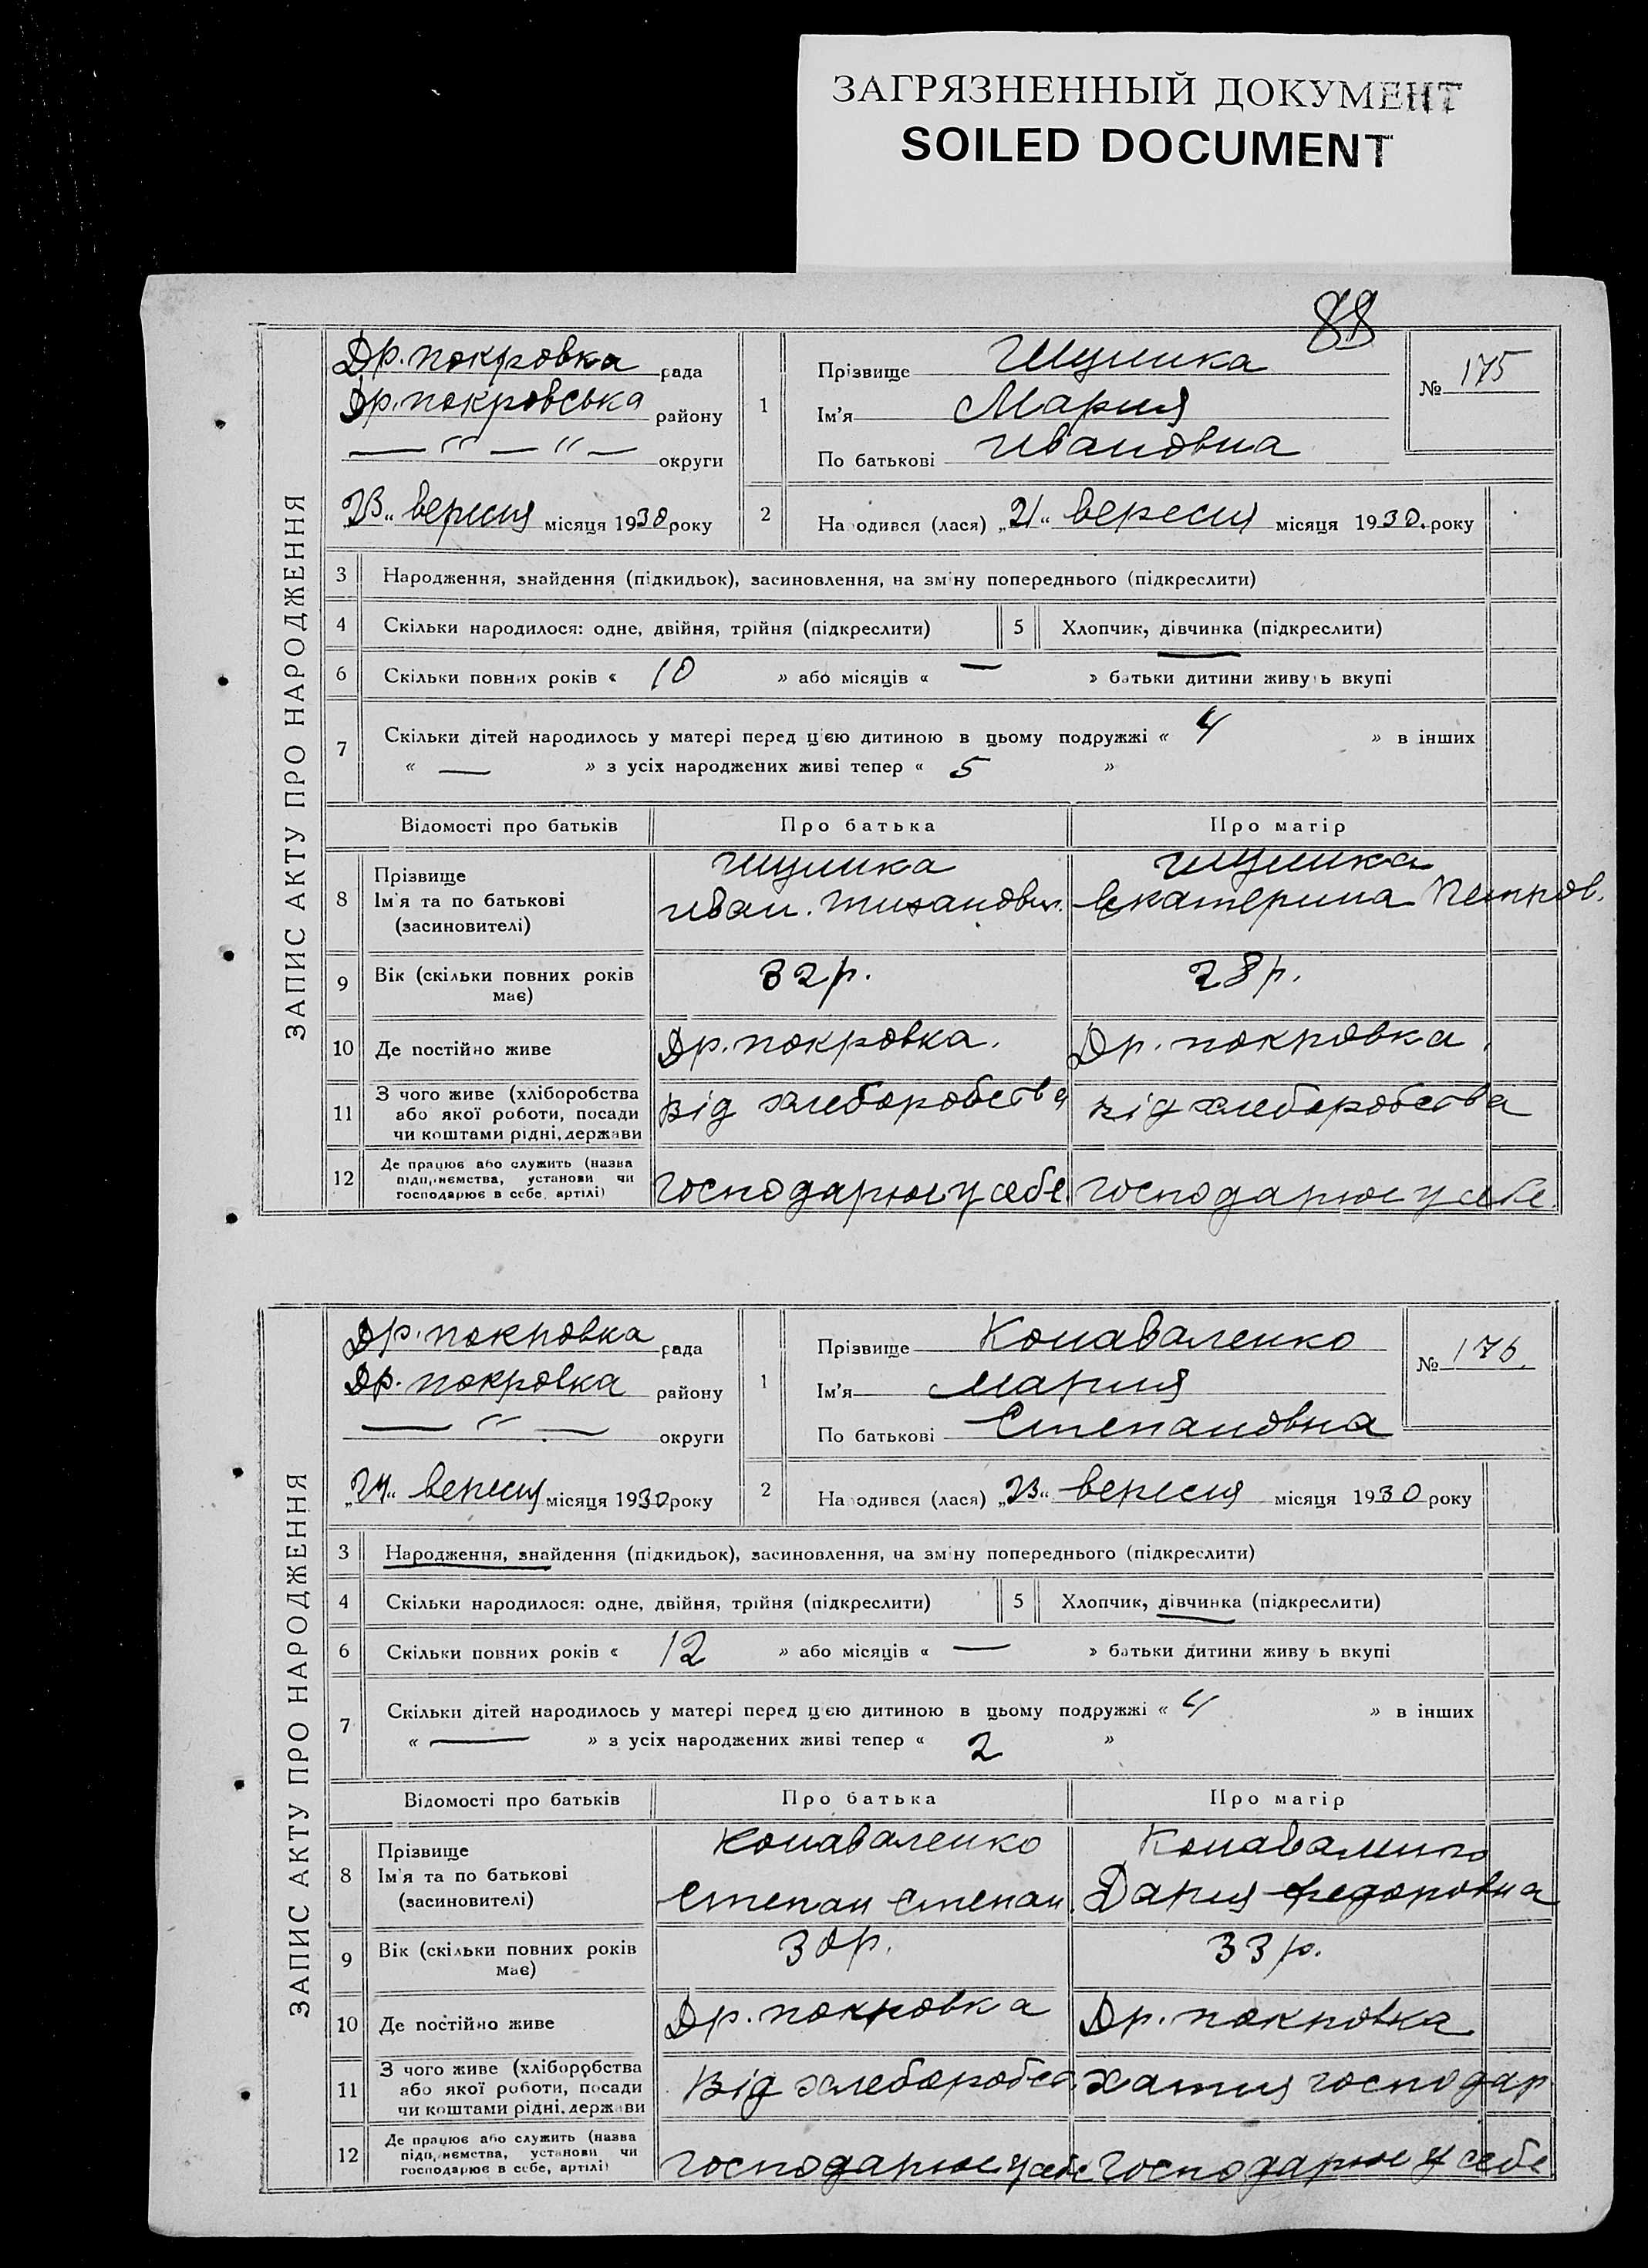 ЗАГРЯЗНЕННЫЙ ДОКУМЕНТ
SOILED DOCUMENT
88
ЗАПИС АКТУ ПРО НАРОДЖЕННЯ
Др. покровка рада
Др. покровська району
— " — " — округи
23" вересня місяця 1930 року
1
Прізвище
Ім'я Мария
По батькові Ивановна
№ 175
2
Народився (лася) „21" вересня місяця 1930. року
3 Народження, знайдення (підкидьок), засиновлення, на зміну попереднього (підкреслити)
4 Скільки народилося: одне, двійня, трійня (підкреслити) 5 Хлопчик, дівчинка (підкреслити)
6 Скільки повних років « 10 » або місяців « — » батьки дитини живуть вкупі
7 Скільки дітей народилось у матері перед цією дитиною в цьому подружжі « 4 » в інших
« — » з усіх народжених живі тепер « 5 »
Відомості про батьків Про батька Про матір
8 Прізвище
Ім'я та по батькові Иван. Екатерина Петров.
(засиновителі)
9 Вік (скільки повних років має) 32 р. 28 р.
10 Де постійно живе Др. покровка. Др. покровка.
11 З чого живе (хліборобства
або якої роботи, посади Від хлеборобства від хлеборобства
чи коштами рідні, держави
12 Де працює або служить (назва
підприємства, установи чи
господарює в себе, артілі) господарює у себе. господарює у себе.
ЗАПИС АКТУ ПРО НАРОДЖЕННЯ
Др. покровка рада
Др. покровка району
— " — округи
„24" вересня місяця 1930 року
1
Прізвище Конаваленко
Ім'я Мария
По батькові Степановна
№ 176.
2
Народився (лася) „23" вересня місяця 1930 року
3 Народження, знайдення (підкидьок), засиновлення, на зміну попереднього (підкреслити)
4 Скільки народилося: одне, двійня, трійня (підкреслити) 5 Хлопчик, дівчинка (підкреслити)
6 Скільки повних років « 12 » або місяців « — » батьки дитини живуть вкупі
7 Скільки дітей народилось у матері перед цією дитиною в цьому подружжі « 4 » в інших
« — » з усіх народжених живі тепер « 2 »
Відомості про батьків Про батька Про матір
8 Прізвище Конаваленко Конаваленко
Ім'я та по батькові Степан Степан. Дария Федоровна
(засиновителі)
9 Вік (скільки повних років має) 30 р. 33 р.
10 Де постійно живе Др. покровка Др. покровка
11 З чого живе (хліборобства
або якої роботи, посади Від хлеборобст. хатня господар
чи коштами рідні, держави
12 Де працює або служить (назва
підприємства, установи чи
господарює в себе, артілі) господарює у себе господарює у себе